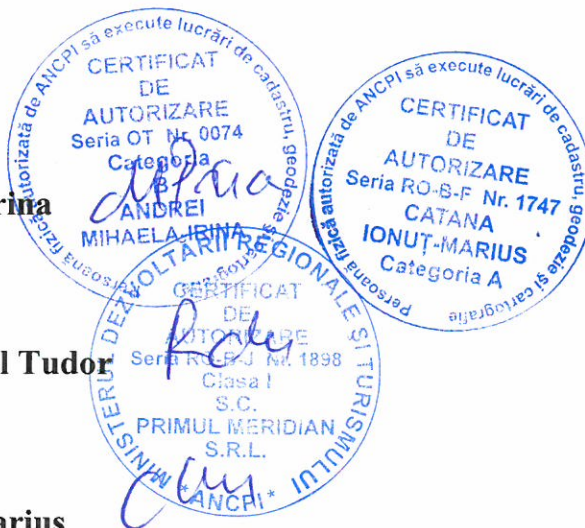 Persoană fizică autorizată de ANCPI să execute lucrări de cadastru, geodezie și cartografie
CERTIFICAT
DE
AUTORIZARE
Seria OT Nr. 0074
Categoria
B
ANDREI
MIHAELA-IRINA
Persoană fizică autorizată de ANCPI să execute lucrări de cadastru, geodezie și cartografie
CERTIFICAT
DE
AUTORIZARE
Seria RO-B-F Nr. 1747
CATANA
IONUȚ-MARIUS
Categoria A
rina
MINISTERUL DEZVOLTĂRII REGIONALE ȘI TURISMULUI
CERTIFICAT
DE
AUTORIZARE
Seria RO-B-J Nr. 1898
Clasa I
S.C.
PRIMUL MERIDIAN
S.R.L.
*ANCPI*
l Tudor
arius